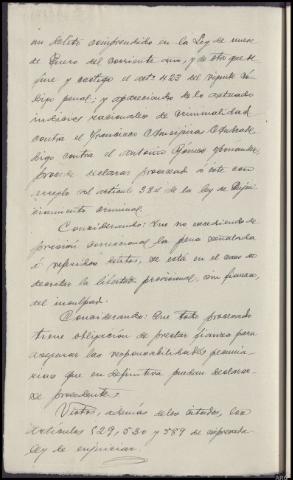 un delito comprendido en la Ley de nueve
de Enero del corriente año, y de otro que de-
fine y castiga el artº 423 del vigente Có-
digo penal; y apareciendo de lo actuado
indicios racionales de criminalidad
contra el Francisco
digo contra el Antonio Gómez Fernandez
procede declarar procesado á éste con
arreglo al artículo 384 de la ley de Enjui-
ciamiento criminal.
Considerando: Que no excediendo de
prisión correccional la pena señalada
á referidos delitos, se está en el caso de
decretar la libertad provisional, sin fianza,
del inculpado.
Considerando: Que todo procesado
tiene obligación de prestar fianza para
asegurar las responsabilidades pecunia-
rias que en definitiva puedan declarar-
se procedentes.
Vistos, además de los citados, los
artículos 529, 530 y 589 de expresada
ley de enjuiciar.